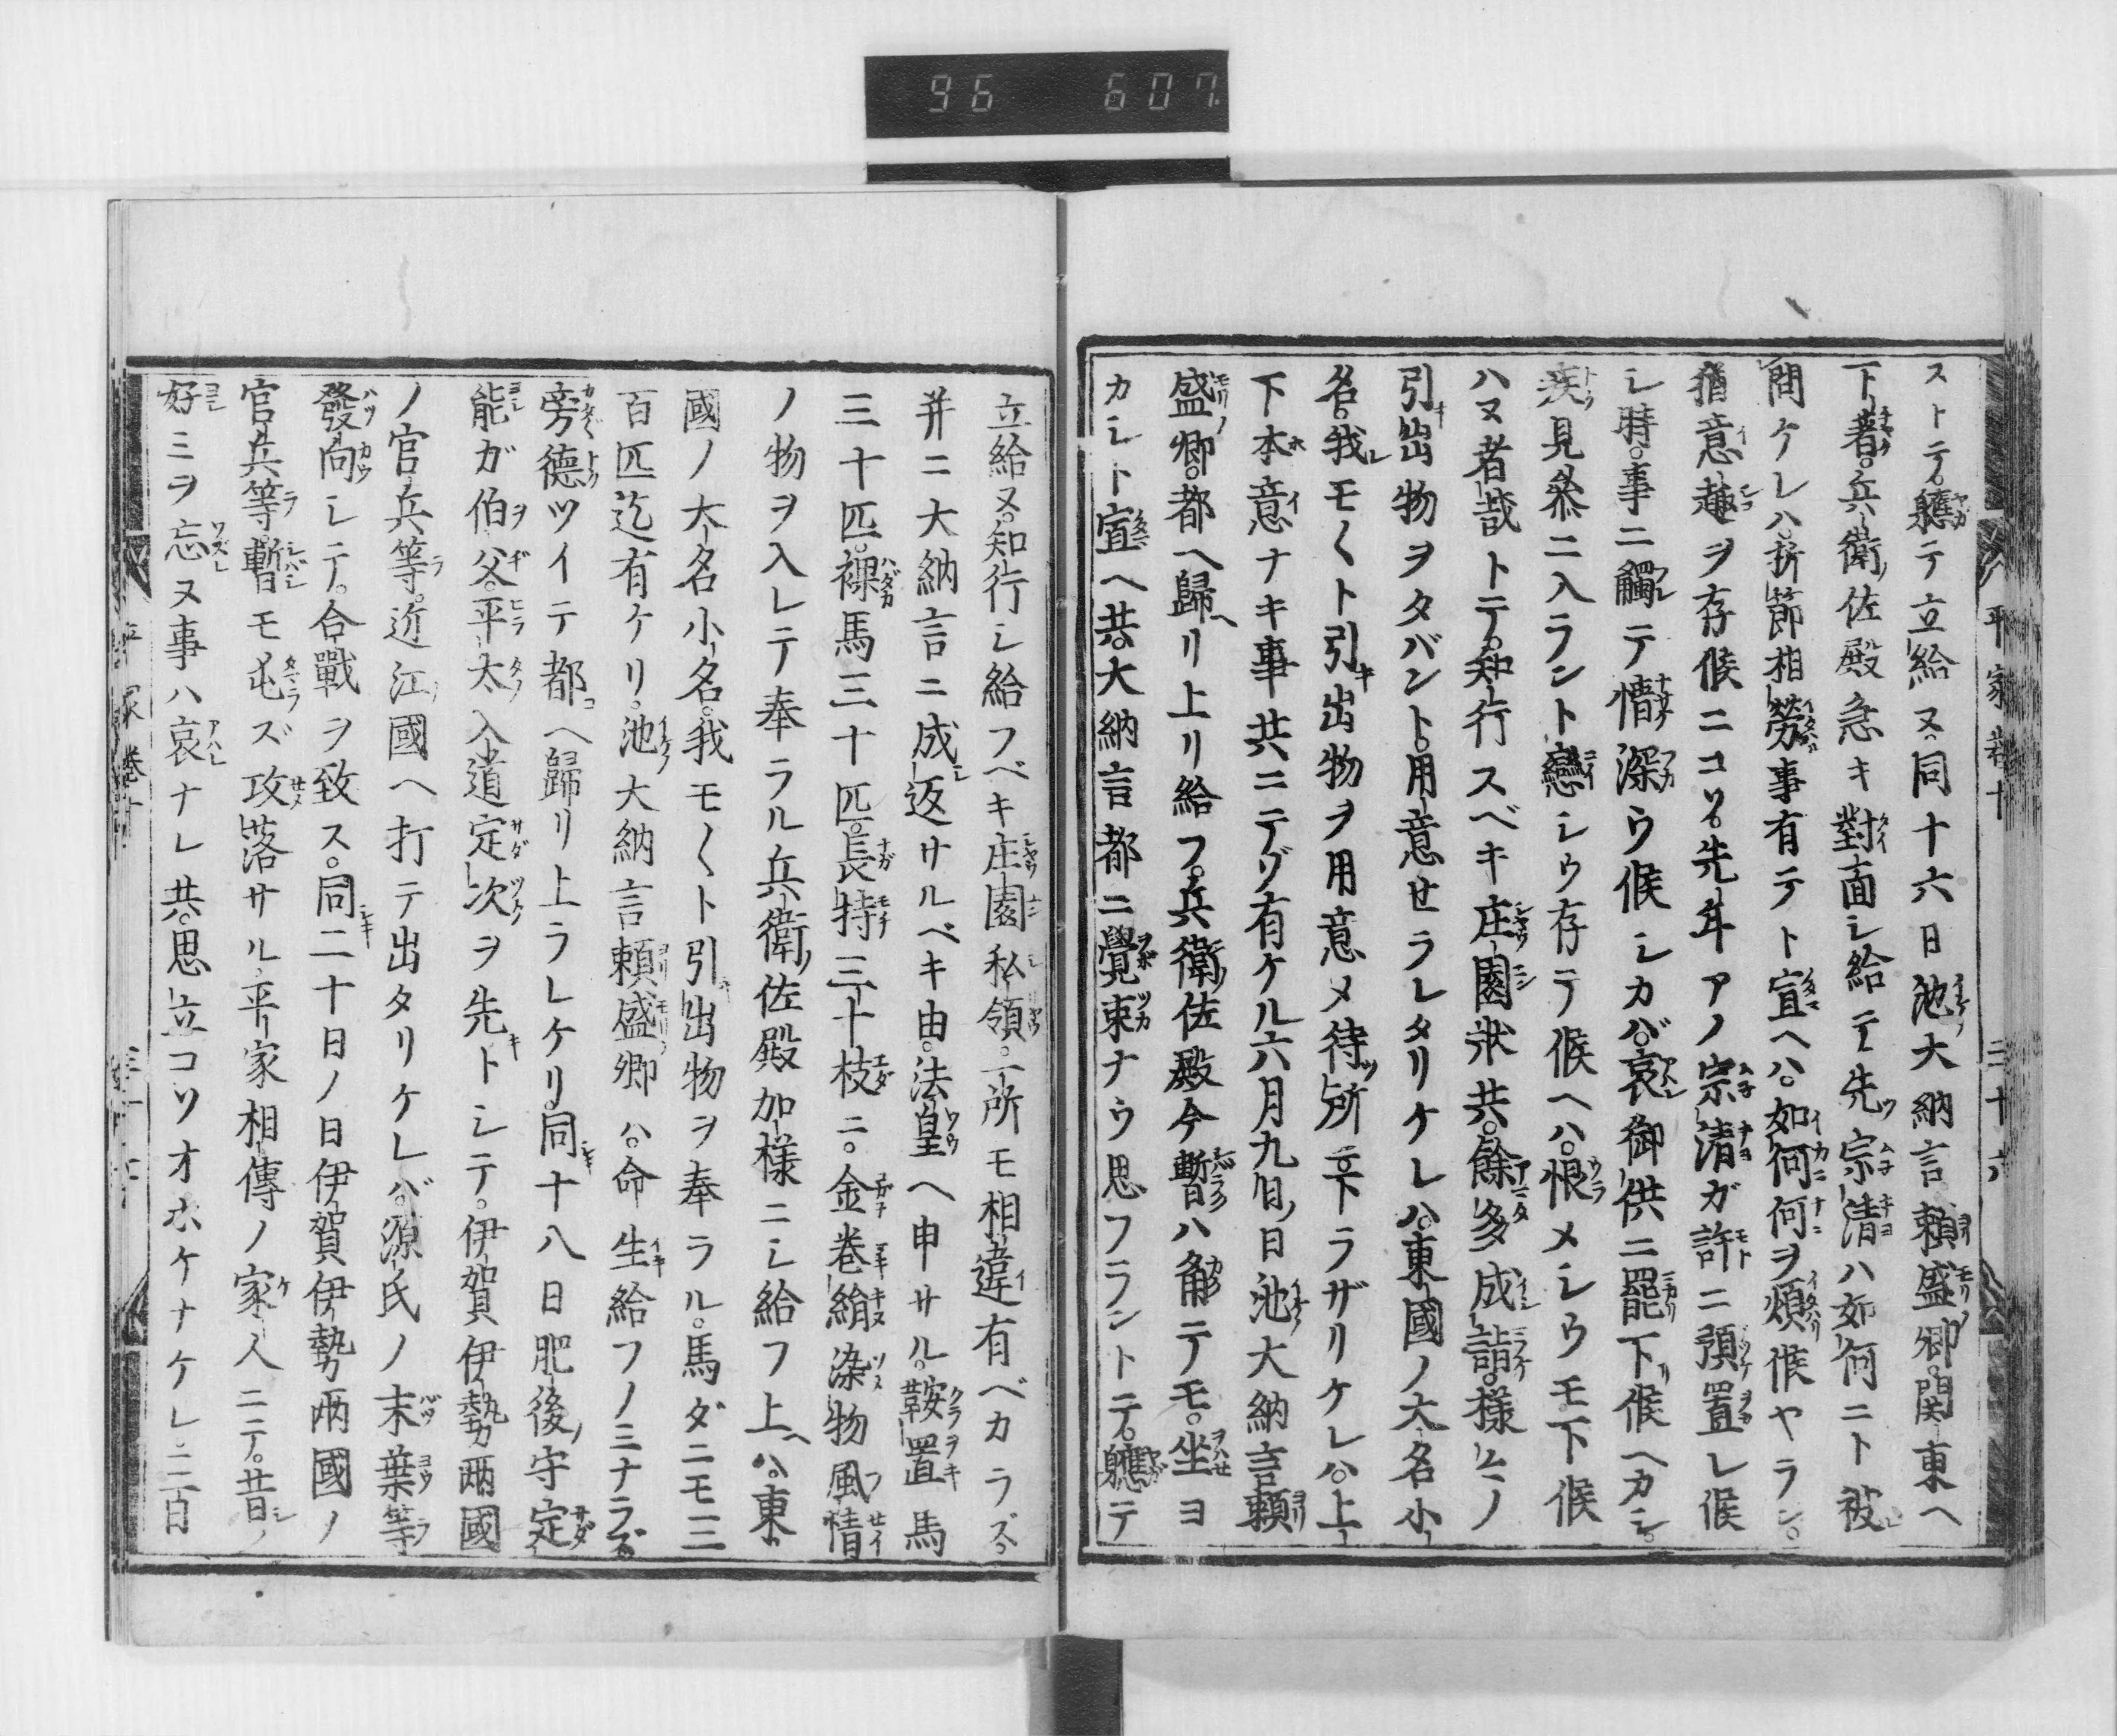 96 607
平家巻十 三十六
ストテ。軈テ立給ヌ。同十六日池大納言頼盛卿。関東ヘ
下著。兵衛佐殿急キ對面シ給テ先宗清ハ如何ニト被
問ケレハ。折節相勞事有テト宣ヘハ。如何何ヲ煩候ヤラン。
猶意趣ヲ存候ニコソ。先年アノ宗清ガ許ニ預置レ候
シ時。事ニ觸テ情深ウ候シカバ。哀御供ニ罷下候ヘカシ。
疾見參ニ入ラント戀シウ存テ候ヘハ。恨メシウモ下候
ハヌ者哉トテ。知行スベキ庄園狀共。餘多成詣。樣々ノ
引出物ヲタバント。用意セラレタリケレハ。東國ノ大名小
名。我モ〳〵ト引出物ヲ用意メ待所ニ下ラザリケレハ。上
下本意ナキ事共ニテゾ有ケル六月九日ノ日池大納言頼
盛卿。都ヘ歸リ上リ給フ。兵衛佐殿今暫ハ角テモ。坐ヨ
カシト宣ヘ共。大納言都ニ覺束ナウ思フラントテ。軈テ
立給ヌ。知行シ給フベキ庄園私領。一所モ相違有ベカラズ。
并ニ大納言ニ成返サルベキ由。法皇ヘ申サル。鞍置馬
三十匹。裸馬三十匹。長持三十枝ニ。金巻絹染物風情
ノ物ヲ入レテ奉ラル兵衛佐殿加樣ニシ給フ上ハ。東
國ノ大名小名。我モ〳〵ト引出物ヲ奉ラル。馬ダニモ三
百匹迄有ケリ。池大納言頼盛卿ハ。命生給フノミナラズ。
旁德ツイテ都ヘ歸リ上ラレケリ。同十八日肥後守定
能ガ伯父。平太入道定次ヲ先トシテ。伊賀伊勢兩國
ノ官兵等。近江國ヘ打テ出タリケレバ。源氏ノ末葉等
發向シテ。合戰ヲ致ス。同二十日ノ日伊賀伊勢兩國ノ
官兵等。暫モ屯ズ攻落サル平家相傳ノ家人ニテ。昔ノ
好ミヲ忘ヌ事ハ哀ナレ共。思立コソオホケナケレ。三日
平家巻十